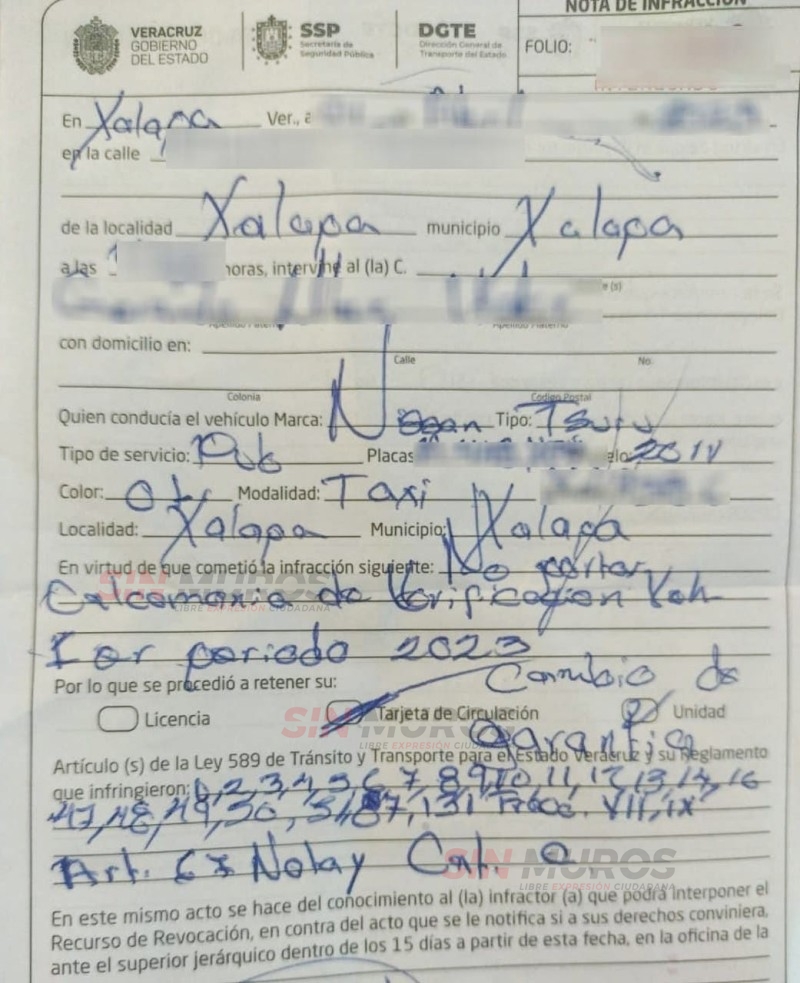 NOTA DE INFRACCIÓN
VERACRUZ
GOBIERNO
DEL ESTADO
SSP
Secretaría de
Seguridad Pública
DGTE
Dirección General de
Transporte del Estado
FOLIO:
En Xalapa Ver., a
en la calle
de la localidad Xalapa municipio Xalapa
a las horas, intervine al (la) C.
con domicilio en:
Calle No.
Colonia Código Postal
Quien conducía el vehículo Marca: Nissan Tipo: Tsuru
Tipo de servicio: Pub Placas
Color: Modalidad: Taxi
Localidad: Xalapa Municipio: Xalapa
En virtud de que cometió la infracción siguiente: No portar
Calcomania de Verificacion Veh
1er periodo 2023
Por lo que se procedió a retener su: Cambio de
Licencia Tarjeta de Circulación Unidad
Garantia
Artículo (s) de la Ley 589 de Tránsito y Transporte para el Estado Veracruz y su Reglamento
que infringieron: 1, 2, 3, 4, 5, 6, 7, 8, 9, 10, 11, 12, 13, 14, 16
47, 48, 49, 50, 131 VII, IX
Art. No
En este mismo acto se hace del conocimiento al (la) infractor (a) que podrá interponer el
Recurso de Revocación, en contra del acto que se le notifica si a sus derechos conviniera,
ante el superior jerárquico dentro de los 15 días a partir de esta fecha, en la oficina de la
SIN MUROS
LIBRE EXPRESIÓN CIUDADANA
SIN MUROS
LIBRE EXPRESIÓN CIUDADANA
SIN MUROS
LIBRE EXPRESIÓN CIUDADANA